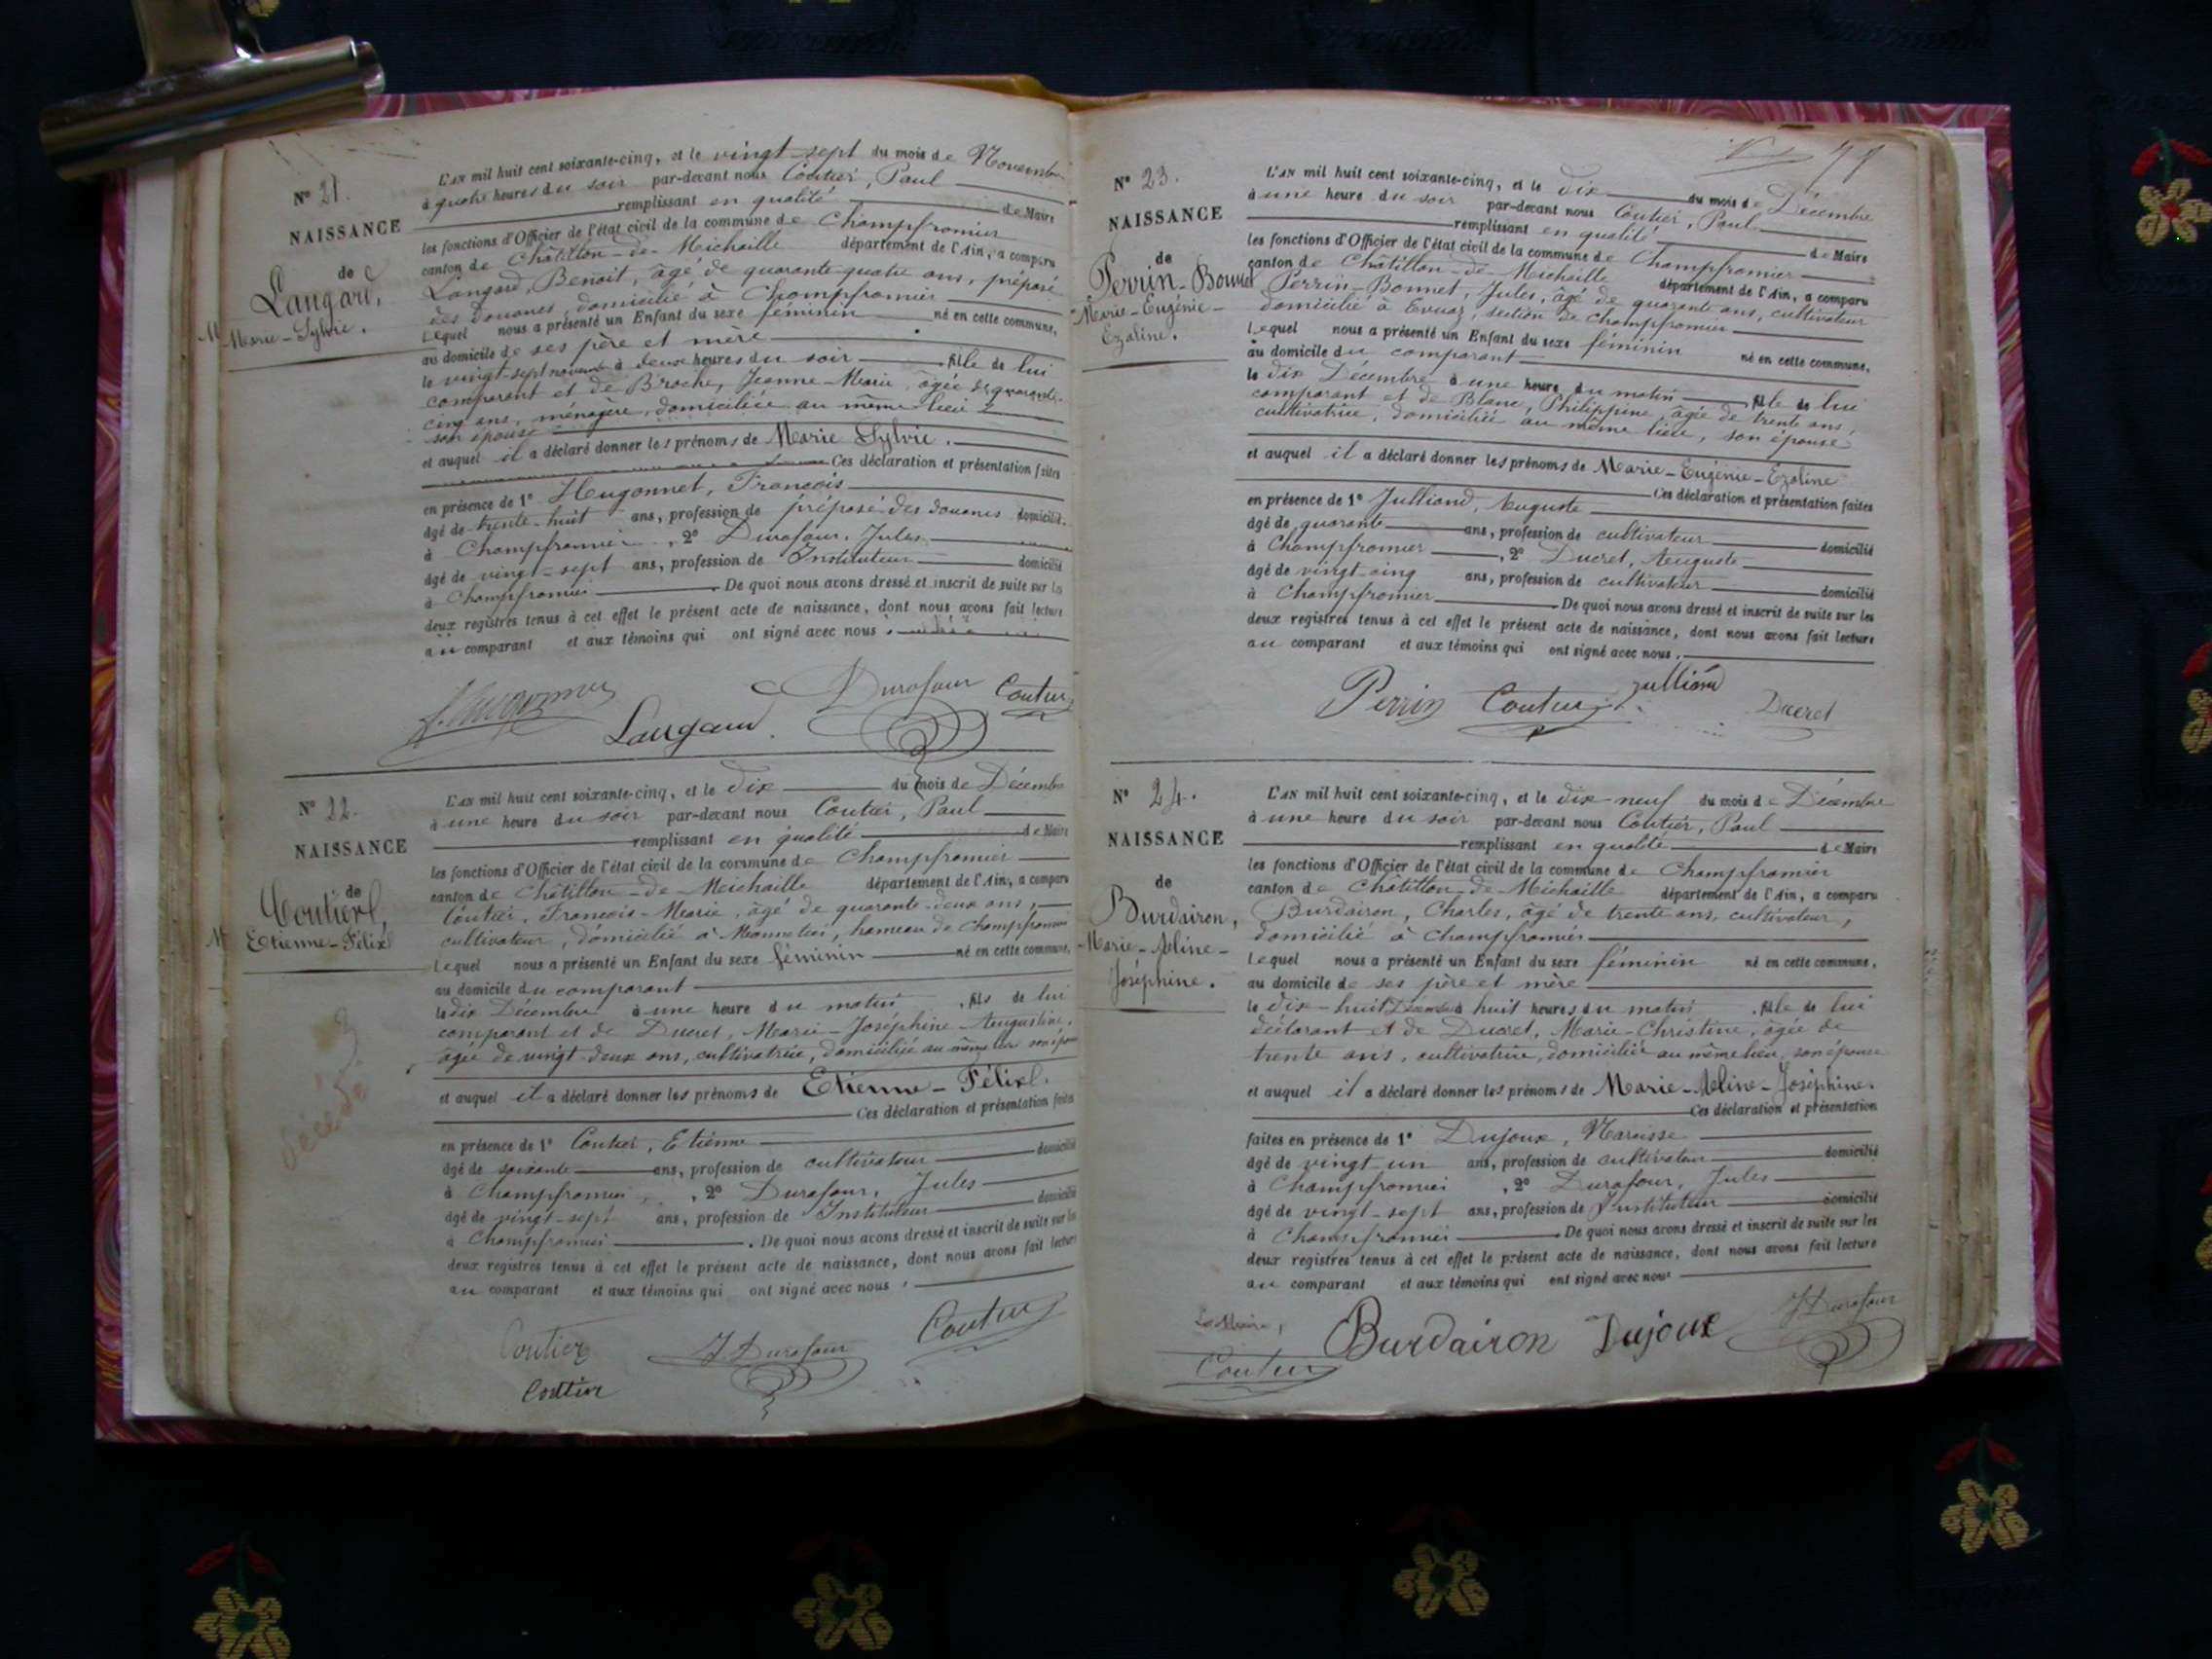 N° 21.
NAISSANCE
de
Langard,
Marie-Sylvie.
L'AN mil huit cent soixante-cinq, et le vingt-sept du mois de Novembre
à quatre heures du soir par-devant nous Coutier, Paul
remplissant en qualité de Maire
les fonctions d'Officier de l'état civil de la commune de Champfromier
canton de Châtillon-de-Michaille département de l'Ain, a comparu
Langard, Benoit, âgé de quarante-quatre ans, préposé
des douanes, domicilié à Champfromier
Lequel nous a présenté un Enfant du sexe féminin né en cette commune,
au domicile de ses père et mère
le vingt-sept novembre à deux heures du soir fille de lui
comparant et de Broche, Jeanne-Marie, âgée de quarante-
cinq ans, ménagère, domiciliée au même lieu
son épouse
et auquel il a déclaré donner les prénoms de Marie Sylvie.
Ces déclaration et présentation faites
en présence de 1° Hugonnet, François
âgé de trente-huit ans, profession de préposé des douanes domicilié
à Champfromier, 2° Durafour, Jules
âgé de vingt-sept ans, profession de Instituteur domicilié
à Champfromier. De quoi nous avons dressé et inscrit de suite sur les
deux registres tenus à cet effet le présent acte de naissance, dont nous avons fait lecture
au comparant et aux témoins qui ont signé avec nous.
Langard Durafour Coutier
N° 22.
NAISSANCE
de
Coutier,
Etienne-Félix
décédé
L'AN mil huit cent soixante-cinq, et le dix du mois de Décembre
à une heure du soir par-devant nous Coutier, Paul
remplissant en qualité de Maire
les fonctions d'Officier de l'état civil de la commune de Champfromier
canton de Châtillon-de-Michaille département de l'Ain, a comparu
Coutier, François-Marie, âgé de quarante-deux ans,
cultivateur, domicilié à Monnetier, hameau de Champfromier
Lequel nous a présenté un Enfant du sexe féminin né en cette commune,
au domicile du comparant
le dix Décembre à une heure du matin, fils de lui
comparant et de Ducret, Marie-Joséphine-Augustine,
âgée de vingt-deux ans, cultivatrice, domiciliée au même lieu son épouse
et auquel il a déclaré donner les prénoms de Etienne-Félix.
Ces déclaration et présentation faites
en présence de 1° Coutier, Etienne
âgé de soixante ans, profession de cultivateur domicilié
à Champfromier, 2° Durafour, Jules
âgé de vingt-sept ans, profession de Instituteur domicilié
à Champfromier. De quoi nous avons dressé et inscrit de suite sur les
deux registres tenus à cet effet le présent acte de naissance, dont nous avons fait lecture
au comparant et aux témoins qui ont signé avec nous.
Coutier J. Durafour Coutier
Coutier
N° 23.
NAISSANCE
de
Perrin-Bonnet
Marie-Eugénie-
Ezoline.
L'AN mil huit cent soixante-cinq, et le dix du mois de Décembre
à une heure du soir par-devant nous Coutier, Paul
remplissant en qualité de Maire
les fonctions d'Officier de l'état civil de la commune de Champfromier
canton de Châtillon-de-Michaille département de l'Ain, a comparu
Perrin-Bonnet, Jules, âgé de quarante ans, cultivateur
domicilié à Evuaz, section de Champfromier
Lequel nous a présenté un Enfant du sexe féminin né en cette commune,
au domicile du comparant
le dix Décembre à une heure du matin fille de lui
comparant et de Blanc, Philippine, âgée de trente ans,
cultivatrice, domiciliée au même lieu, son épouse
et auquel il a déclaré donner les prénoms de Marie-Eugénie-Ezoline
Ces déclaration et présentation faites
en présence de 1° Julliand, Auguste
âgé de quarante ans, profession de cultivateur domicilié
à Champfromier, 2° Ducret, Auguste
âgé de vingt-cinq ans, profession de cultivateur domicilié
à Champfromier. De quoi nous avons dressé et inscrit de suite sur les
deux registres tenus à cet effet le présent acte de naissance, dont nous avons fait lecture
au comparant et aux témoins qui ont signé avec nous.
Perrin Coutier Julliand Ducret
N° 24.
NAISSANCE
de
Burdairon,
Marie-Aline-
Joséphine.
L'AN mil huit cent soixante-cinq, et le dix-neuf du mois de Décembre
à une heure du soir par-devant nous Coutier, Paul
remplissant en qualité de Maire
les fonctions d'Officier de l'état civil de la commune de Champfromier
canton de Châtillon-de-Michaille département de l'Ain, a comparu
Burdairon, Charles, âgé de trente ans, cultivateur,
domicilié à Champfromier
Lequel nous a présenté un Enfant du sexe féminin né en cette commune,
au domicile de ses père et mère
le dix-huit Décembre à huit heures du matin, fille de lui
déclarant et de Ducret, Marie-Christine, âgée de
trente ans, cultivatrice, domiciliée au même lieu, son épouse
et auquel il a déclaré donner les prénoms de Marie-Aline-Joséphine.
Ces déclaration et présentation
faites en présence de 1° Dujoux, Narcisse
âgé de vingt-un ans, profession de cultivateur domicilié
à Champfromier, 2° Durafour, Jules
âgé de vingt-sept ans, profession de Instituteur domicilié
à Champfromier. De quoi nous avons dressé et inscrit de suite sur les
deux registres tenus à cet effet le présent acte de naissance, dont nous avons fait lecture
au comparant et aux témoins qui ont signé avec nous
Le Maire,
Coutier Burdairon Dujoux J. Durafour